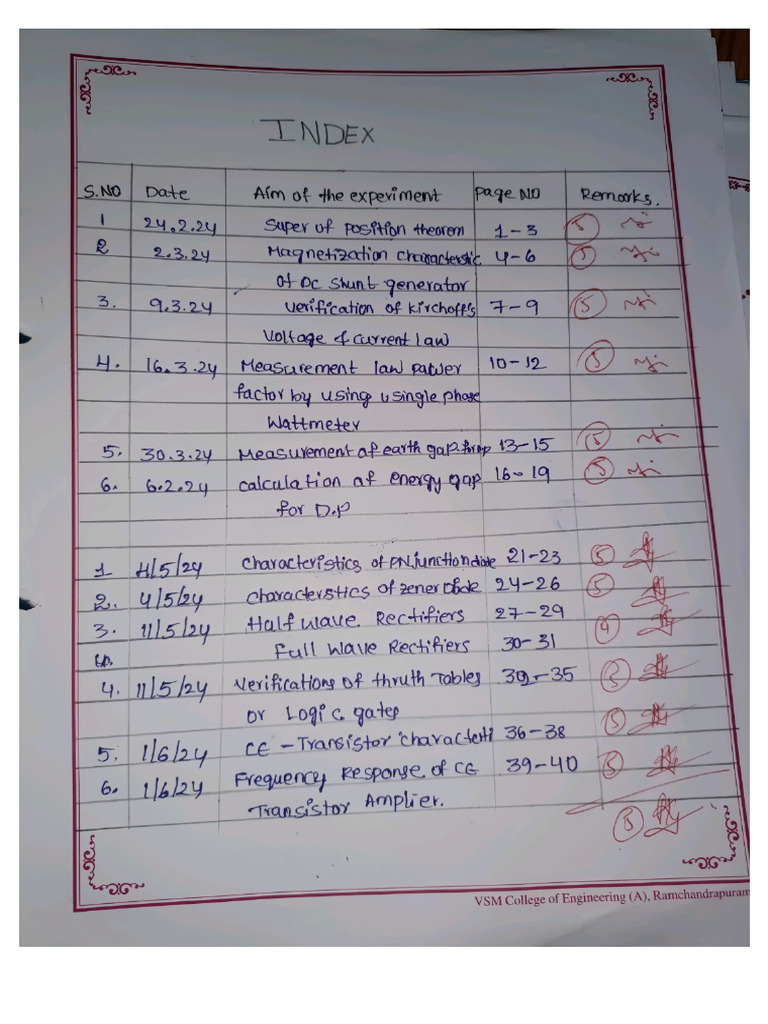 INDEX
S.NO Date Aim of the experiment Page NO Remarks.
1 24.2.24 Super of Position theorem 1-3 5
2 2.3.24 Magnetization characterstic 4-6 5
of Dc shunt generator
3. 9.3.24 verification of Kirchoff's 7-9 5
Voltage & current law
4. 16.3.24 Measurement law power 10-12 5
factor by using using single phase
Wattmeter
5. 30.3.24 Measurement of earth gap 13-15 5
6. 6.2.24 calculation of energy gap 16-19 5
for D.P
1 4/5/24 characteristics of PN junction diode 21-23 5
2. 4/5/24 characterstics of zener Diode 24-26 5
3. 11/5/24 Half wave Rectifiers 27-29 4
Full Wave Rectifiers 30-31
4. 11/5/24 Verifications of thruth Tables 32-35 5
or Logic gates 5
5. 1/6/24 CE - Transistor characteristi 36-38
6. 1/6/24 Frequency Response of CE 39-40 5
Transistor Amplier. 5
VSM College of Engineering (A), Ramchandrapuram